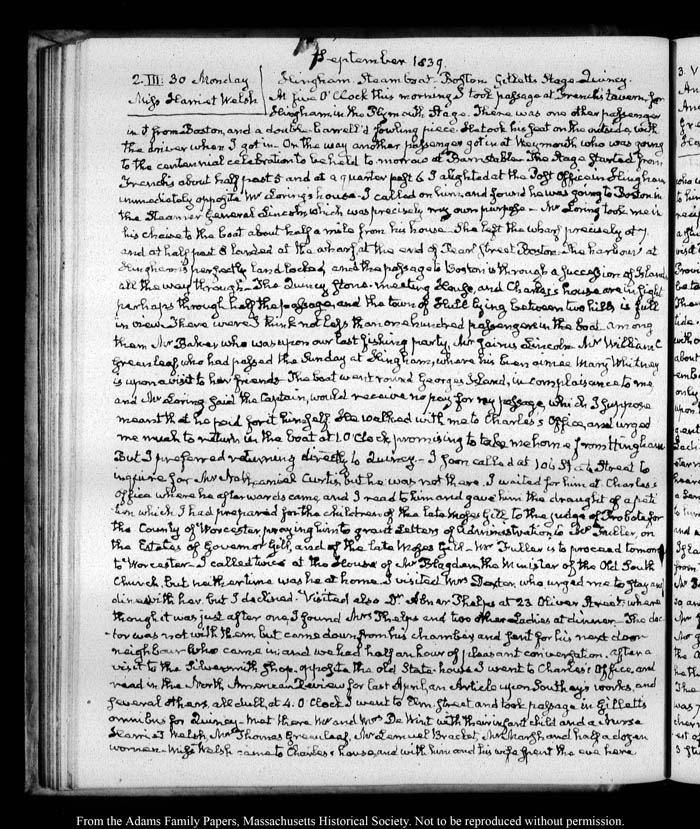 September 1839.
2. III: 30 Monday
Miss Harriet Welsh
Hingham. Steamboat. Boston. Gilletts Stage. Quincy.
At five O'Clock this morning I took passage at French's tavern, for
Hingham, in the Plymouth Stage. There was one other passenger
in it from Boston, and a double-barrell'd fowling piece. He took his seat on the outside, with
the driver when I got in. On the way another passenger got in at Weymouth who was going
to the centennial celebration to be held to-morrow at Barnstable. The Stage started from
French's about half past 5 and at a quarter past 6 I alighted at the Post Office in Hingham
immediately opposite Mr Loring's house. I called on him, and found he was going to Boston in
the Steamer General Lincoln, which was precisely my own purpose — Mr Loring took me in
his chaise to the boat about half a mile from his house. She left the wharf precisely at 7.
and at half past 8 landed at the wharf at the end of Pearl Street Boston. The harbour at
Hingham is perfectly land locked, and the passage to Boston is through a succession of Islands
all the way through — The Quincy Stone-meeting House, and Charles's house are in sight
perhaps through half the passage, and the town of Hull lying between two hills is full
in view. There were I think not less than one hundred passengers in the boat, among
them Mr Baker who was upon our last fishing party, Mr Jairus Lincoln Mr William C
Greenleaf, who had passed the Sunday at Hingham, where his Mary Whitney
is upon a visit to her friends. The boat went round Georges Island, in complaisance to me
and Mr Loring said the Captain, would receive no pay for my passage, which I suppose
meant that he paid for it himself. He walked with me to Charles's Office, and urged
me much to return in the boat at 1. O'Clock promising to take me home from Hingham
But I preferred returning directly to Quincy — I soon called at 106 State Street to
inquire for Mr Nathaniel Curtis, but he was not there. I waited for him at Charles's
Office where he afterwards came, and I read to him and gave him the draught of a peti
tion which I had prepared for the children of the late Moses Gill to the judge of Probate for
the County of Worcester praying him to grant Letters of Administration to Mr Fuller, on
the Estates of Governor Gill, and of the late Moses Gill — Mr Fuller is to proceed tomorrow
to Worcester — I called twice at the House of Mr Blagden the Minister of the Old South
Church, but neither time was he at home. I visited Mrs Dexter, who urged me to stay and
dine with her, but I declined. Visited also Dr Abner Phelps at 23 Oliver Street; where
though it was just after one, I found Mrs Phelps and two other Ladies at dinner — The doc-
tor was not with them but came down from his chamber and sent for his next door
neighbour who came in, and we had half an hour of pleasant conversation. after a
visit to the Silversmith shop, opposite the old State-house I went to Charles's Office, and
read in the North American Review for last April, an Article upon Southey's works, and
several others, all dull, at 4. O'Clock I went to Elm Street and took passage in Gilletts
omnibus for Quincy — met there Mr and Mrs De Wint with their infant child and a nurse
Harriet Welsh, Mrs Thomas Greenleaf, Mr Lemuel Bracket, Mr Marsh and half a dozen
women — Miss Welsh came to Charles's house, and with him and his wife spent the eve here
From the Adams Family Papers, Massachusetts Historical Society. Not to be reproduced without permission.